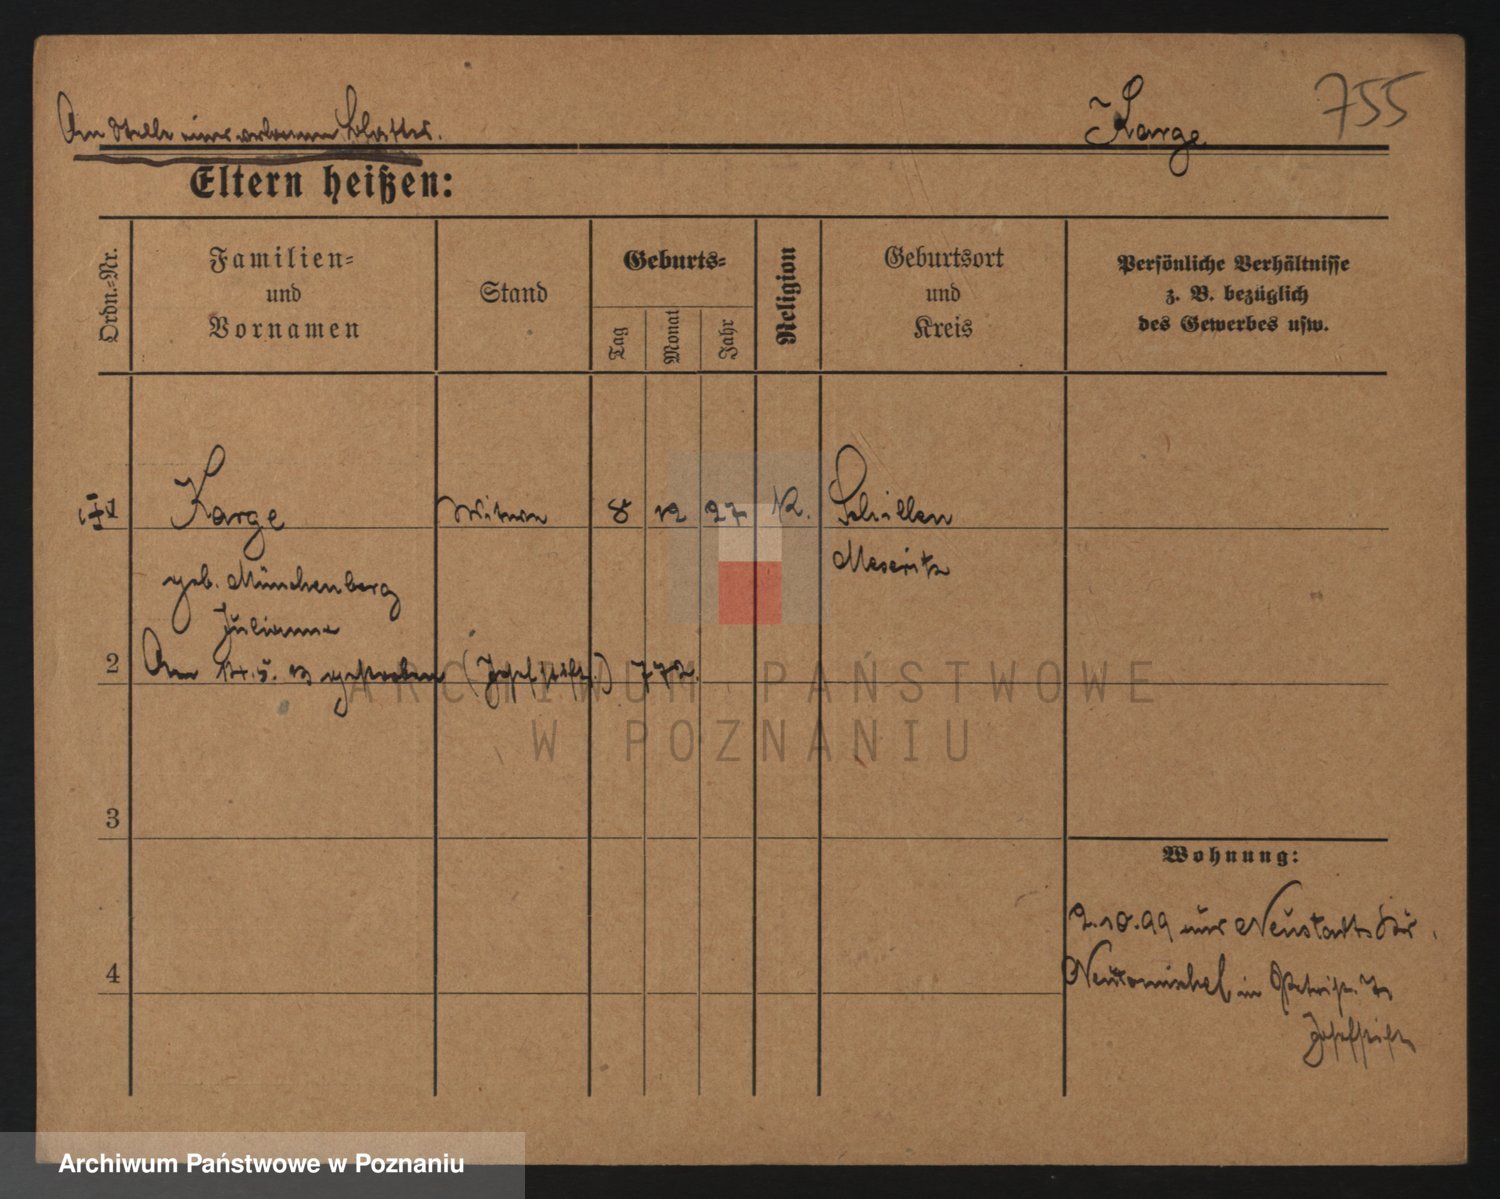 An Stelle eines verlorenen Blattes.
Karge
755
Eltern heißen:
Ordn.=Nr.
Familien=
und
Vornamen
Stand
Geburts=
Tag
Monat
Jahr
Religion
Geburtsort
und
Kreis
Persönliche Verhältnisse
z. B. bezüglich
des Gewerbes usw.
1 Karge Witwe 8 12 27 K. Schillen
Meseritz
geb. Münchenberg
Julianne
2 Am 14.5. 13 gestorben (Josefstift.) 772.
3
4
Wohnung:
2.10.99 aus Neustadt
Neutomischel in Petristr. 7
Josefstift
ARCHIWUM PAŃSTWOWE
W POZNANIU
Archiwum Państwowe w Poznaniu